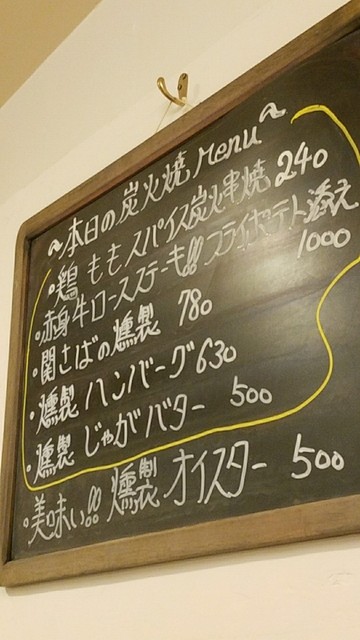 ～本日の炭火焼 Menu～
・鶏ももスパイス炭火串焼 240
・赤身牛ロースステーキ!! フライポテト添え
1000
・関さばの燻製 780
・燻製ハンバーグ 630
・燻製じゃがバター 500
・美味い!! 燻製オイスター 500